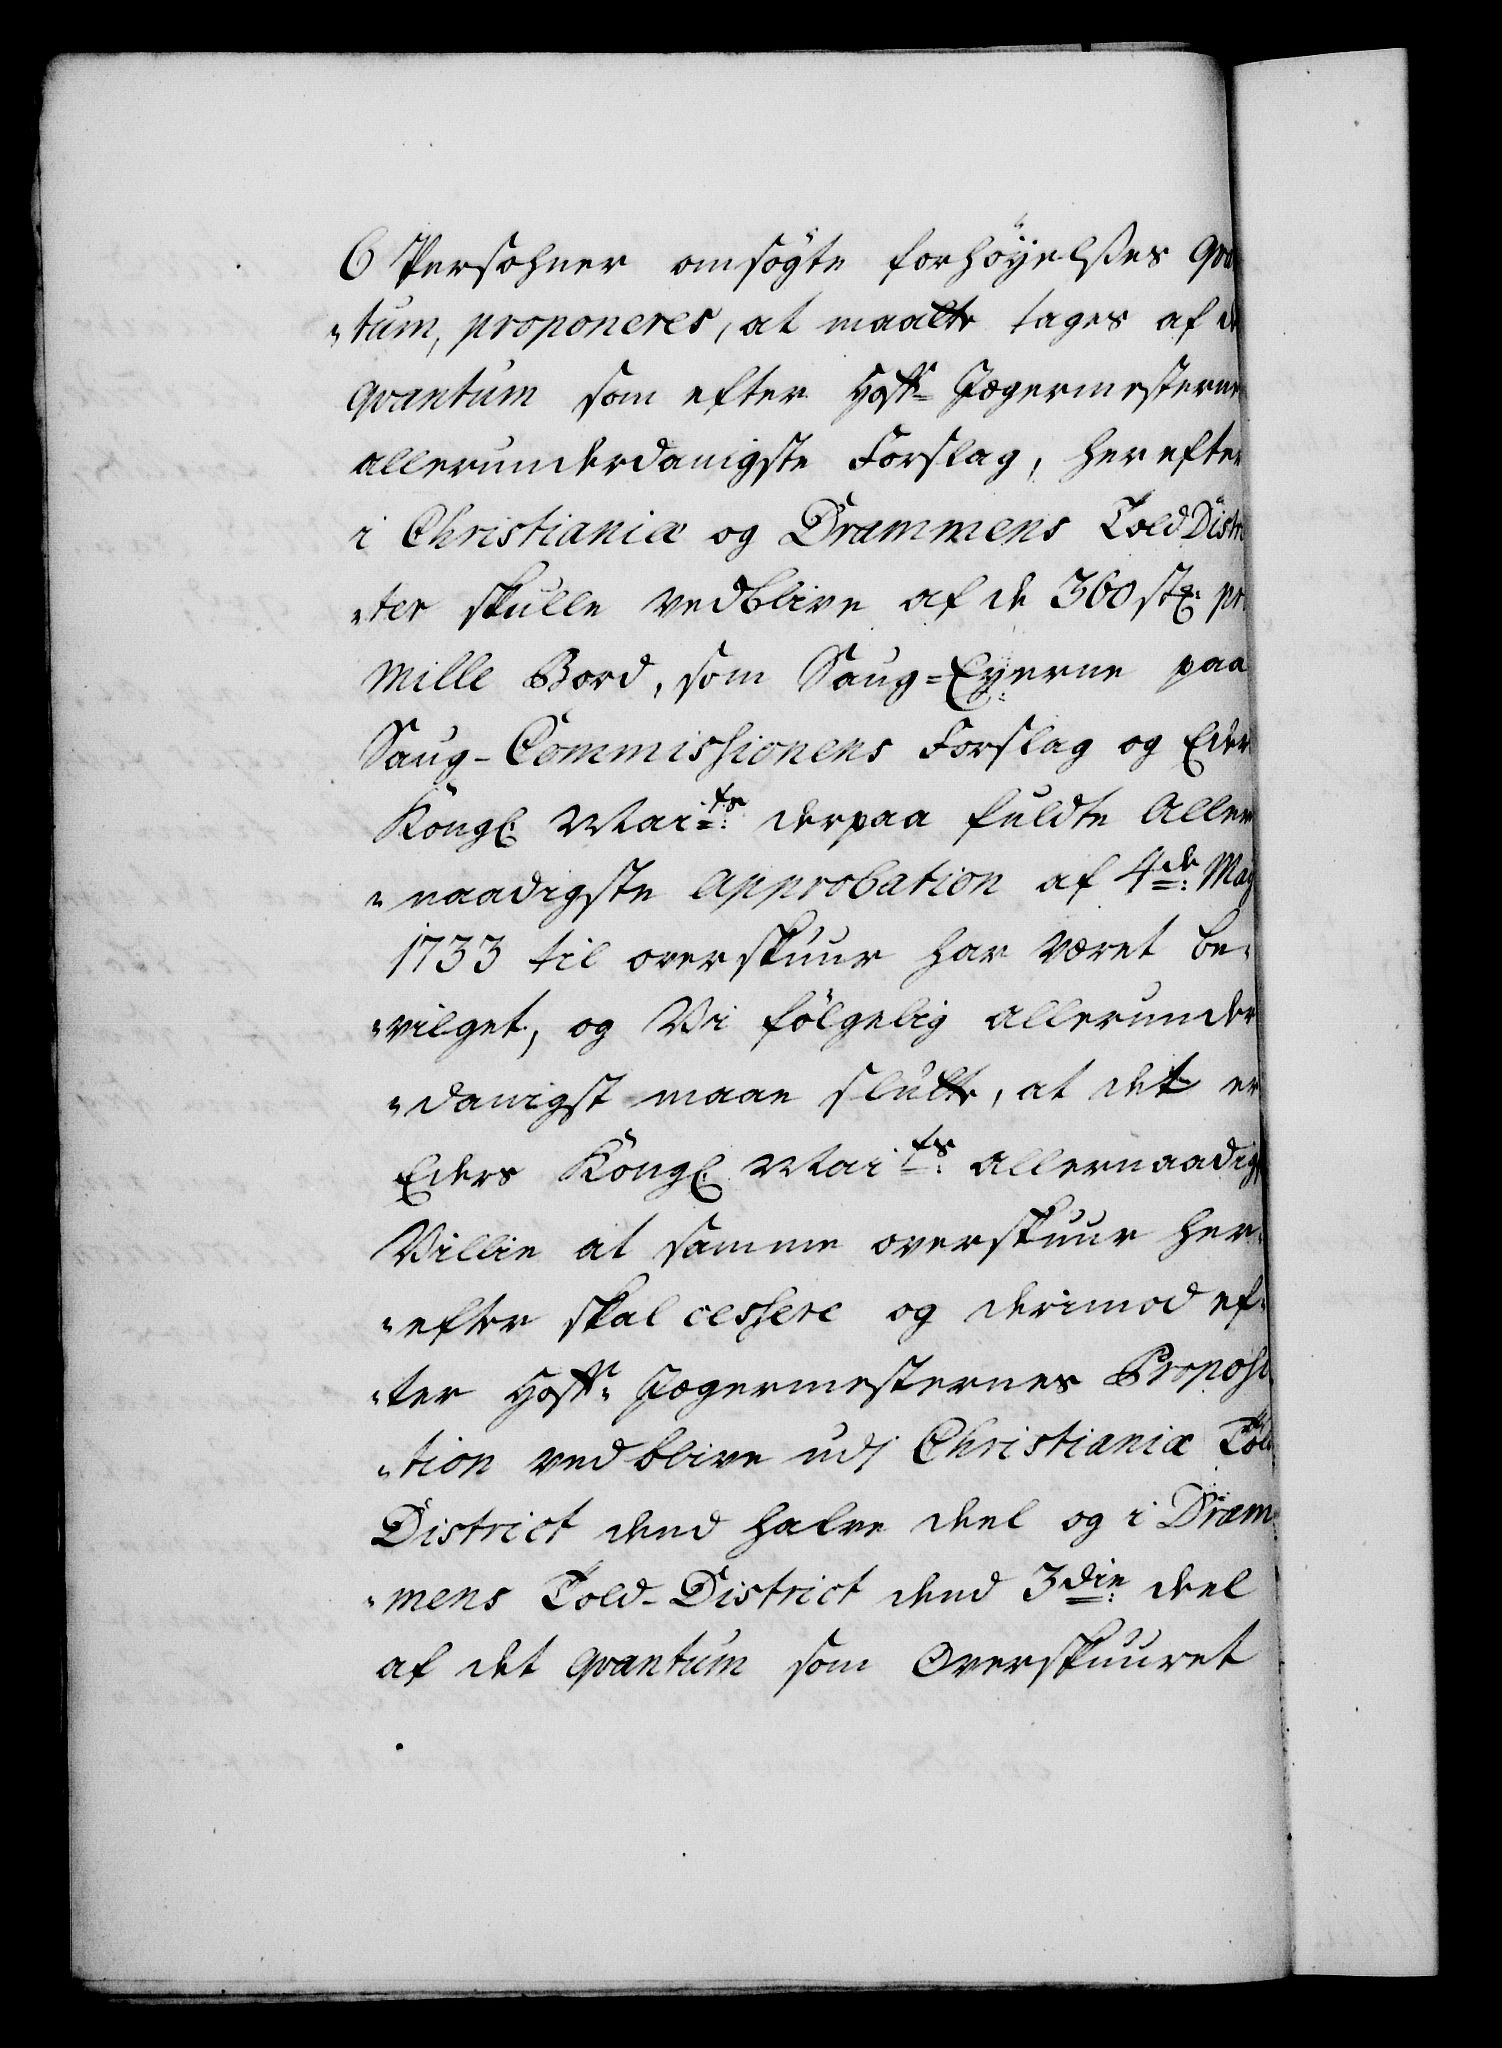 6 Persohner ansögte forhöyelsses qvan
„tum, proponeres, at maatte tages af de
qvantum som efter Hoff-Jægermesternes
allerunderdanigste Forslag, herefter
i Christianiæ og Drammens Told Distri
„ter skulle vedblive af de 360 stk: pr
Mille Bord, som Saug-Eyerne paa
Saug-Commissionens Forslag og Eders
Kongl: Mai:ts derpaa fuldte Aller
„naadigste Approbation af 4de: Maj
1733 til overskuur har været be„
„vilget, og Vi fölgelig allerunder
„danigst maae slutte, at det er
Eders Kongl: Mai:ts allernaadigst
Villie at samme overskuur her„
„efter skal cessere og derimod ef„
„ter Hoff-Jægermesternes Proposi
„tion vedblive udj Christianiæ Told
District dend halve deel og i Dram
„mens Told-District dend 3die: deel
af det qvantum som Overskuuret